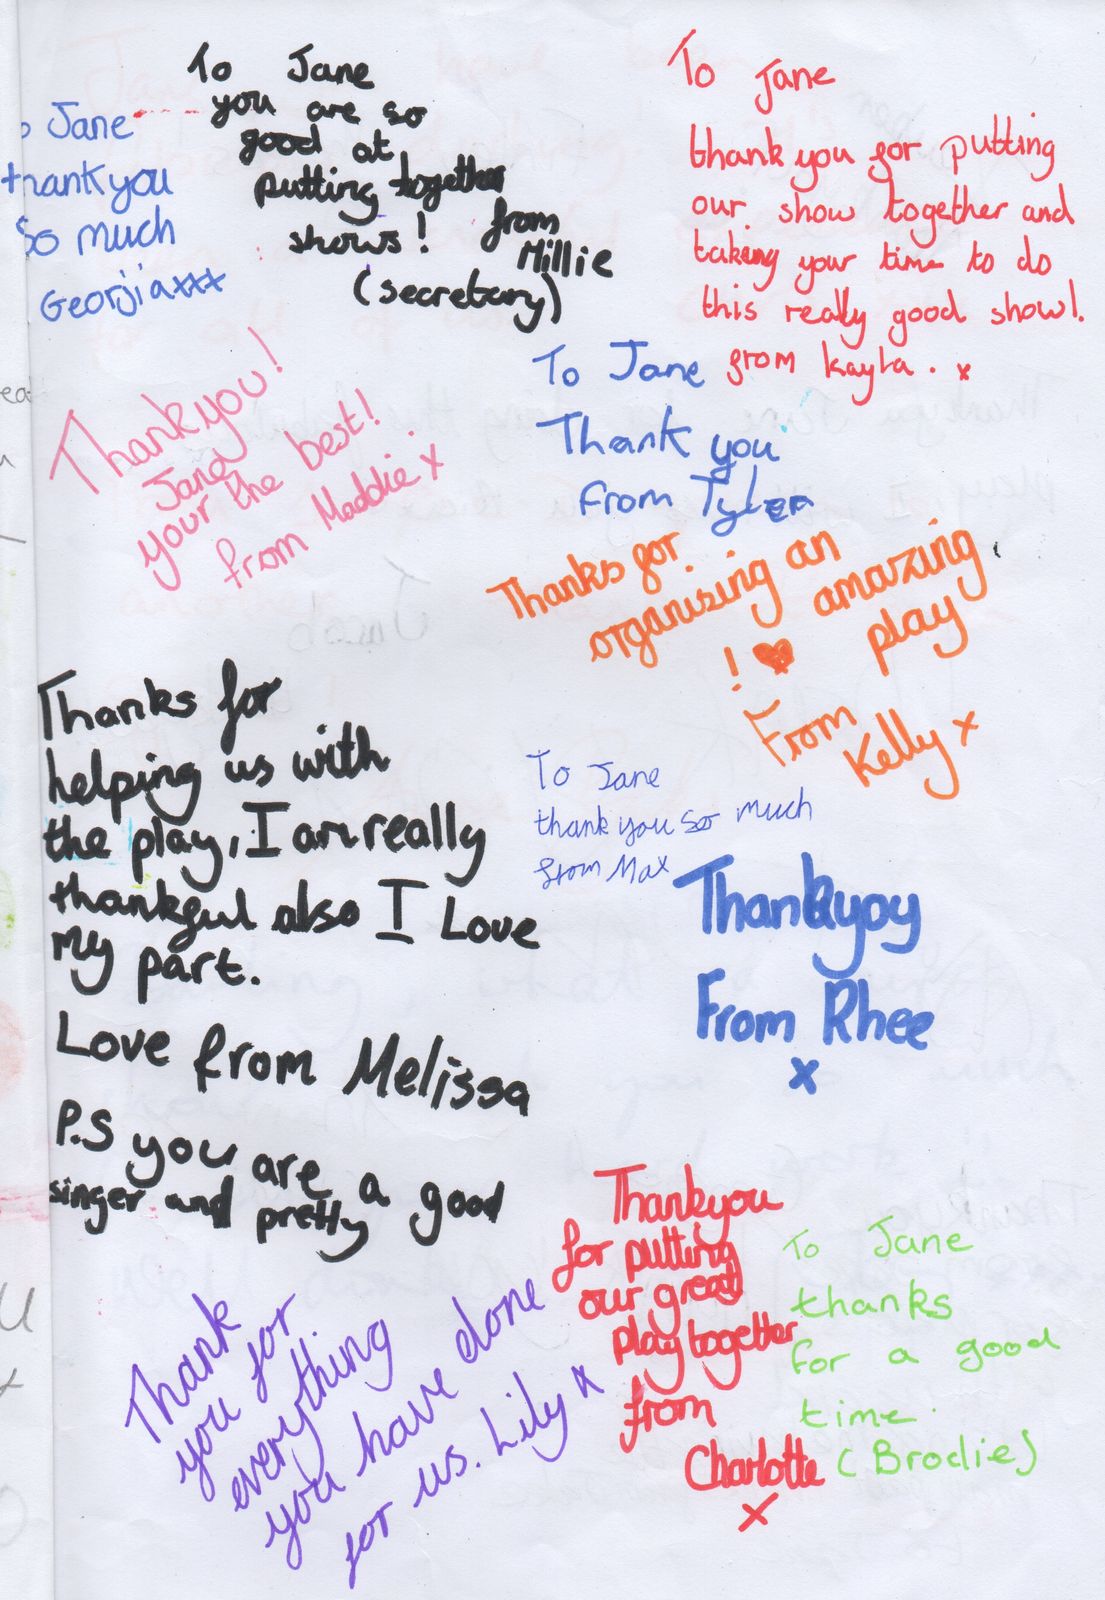 To Jane
you are so
good at
putting together
shows!
from
Millie
(secretary)
Jane
thank you
So much
Georjiaxxx
To Jane
thank you for putting
our show together and
taking your time to do
this really good show!.
from kayla. x
Thankyou!
Jane
your the best!
from Maddie x
To Jane
Thank you
From Tyler
Thanks for
organising an
amazing
play
! ♥
From
Kelly x
Thanks for
helping us with
the play, I am really
thankful also I Love
my part.
Love from Melissa
P.S you are a good
singer and pretty
To Jane
thank you so much
from Max
Thankyoy
From Rhee
x
Thank
you for
everything
you have done
for us. Lily x
Thankyou
for putting
our great
play together
from
Charlotte
x
To Jane
thanks
for a good
time.
(Brodie)